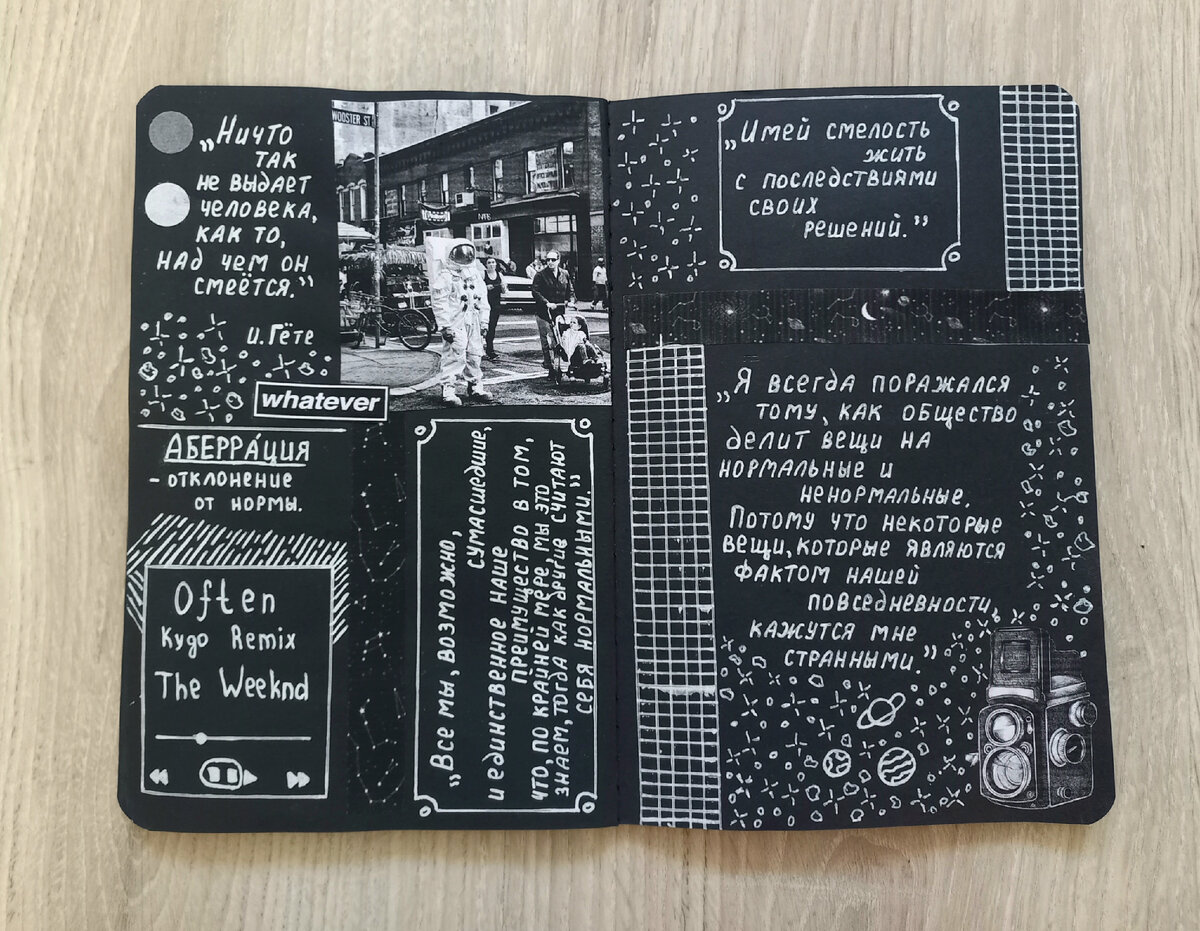 „Ничто
так
не выдает
человека,
как то,
над чем он
смеётся.”
И.Гёте
WOOSTER ST
whatever
Аберра́ция
- отклонение
от нормы.
Often
Kygo Remix
The Weeknd
„Все мы, возможно,
сумасшедшие,
и единственное наше
преимущество в том,
что, по крайней мере, мы это
знаем, тогда как другие считают
себя нормальными.”
„Имей смелость
жить
с последствиями
своих
решений.”
„Я всегда поражался
тому, как общество
делит вещи на
нормальные и
ненормальные.
Потому что некоторые
вещи, которые являются
фактом нашей
повседневности,
кажутся мне
странными.”